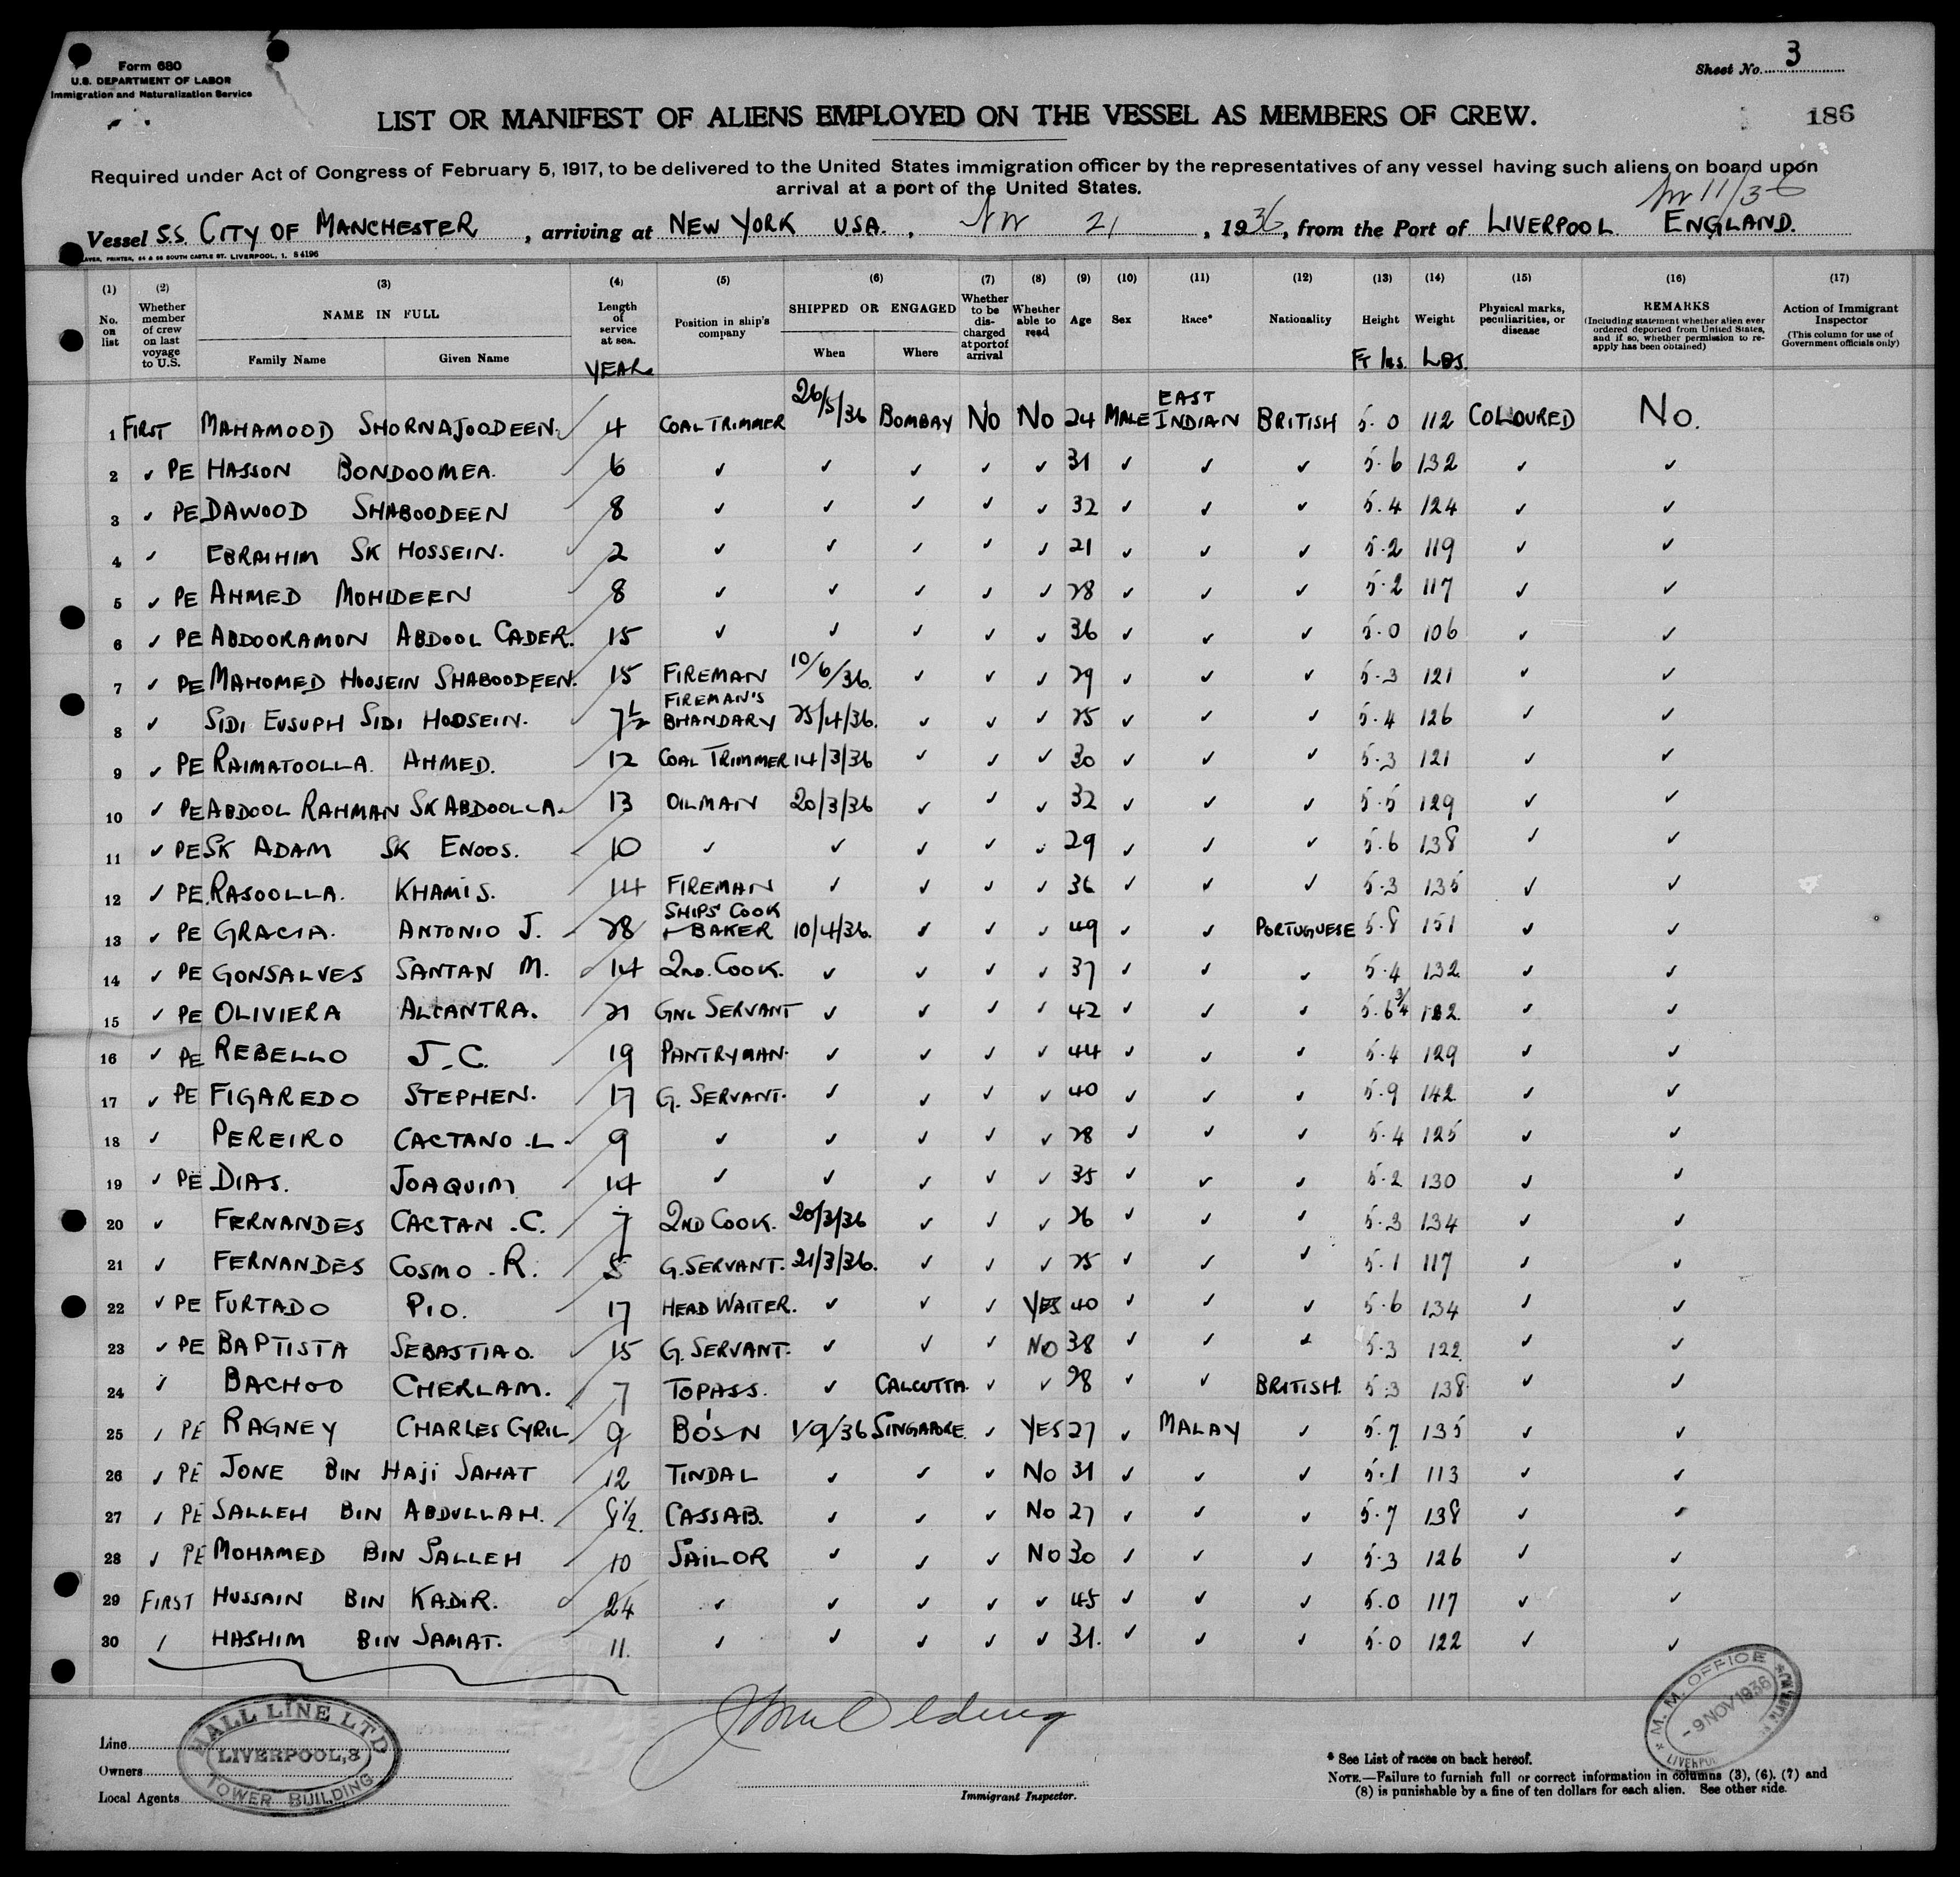 Form 680
U.S. DEPARTMENT OF LABOR
Immigration and Naturalization Service
Sheet No. 3
186
LIST OR MANIFEST OF ALIENS EMPLOYED ON THE VESSEL AS MEMBERS OF CREW.
Required under Act of Congress of February 5, 1917, to be delivered to the United States immigration officer by the representatives of any vessel having such aliens on board upon
arrival at a port of the United States.
Vessel S.S. CITY OF MANCHESTER, arriving at NEW YORK USA., Nov 21, 1936, from the Port of LIVERPOOL ENGLAND.
(1) No. on list
(2) Whether member of crew on last voyage to U.S.
(3) NAME IN FULL Family Name Given Name
(4) Length of service at sea. YEAR
(5) Position in ship's company
(6) SHIPPED OR ENGAGED When Where
(7) Whether to be discharged at port of arrival
(8) Whether able to read
(9) Age
(10) Sex
(11) Race*
(12) Nationality
(13) Height Ft Ins.
(14) Weight LBS.
(15) Physical marks, peculiarities, or disease
(16) REMARKS (Including statement whether alien ever ordered deported from United States, and if so, whether permission to re-apply has been obtained)
(17) Action of Immigrant Inspector (This column for use of Government officials only)
1 FIRST MAHAMOOD SHORNAJOODEEN. 4 COAL TRIMMER 26/5/36 BOMBAY NO NO 24 MALE EAST INDIAN BRITISH 5.0 112 COLOURED NO.
2 ✓ PE HASSON BONDOOMEA. 6 ✓ ✓ ✓ ✓ ✓ 31 ✓ ✓ ✓ 5.6 132 ✓ ✓
3 ✓ PE DAWOOD SHABOODEEN 8 ✓ ✓ ✓ ✓ ✓ 32 ✓ ✓ ✓ 5.4 124 ✓ ✓
4 ✓ EBRAIHIM SK HOSSEIN. 2 ✓ ✓ ✓ ✓ ✓ 21 ✓ ✓ ✓ 5.2 119 ✓ ✓
5 ✓ PE AHMED MOHIDEEN 8 ✓ ✓ ✓ ✓ ✓ 28 ✓ ✓ ✓ 5.2 117 ✓ ✓
6 ✓ PE ABDOORAMON ABDOOL CADER. 15 ✓ ✓ ✓ ✓ ✓ 36 ✓ ✓ ✓ 5.0 106 ✓ ✓
7 ✓ PE MAHOMED HOOSEIN SHABOODEEN. 15 FIREMAN 10/6/36. ✓ ✓ ✓ 29 ✓ ✓ ✓ 5.3 121 ✓ ✓
8 ✓ SIDI EUSUPH SIDI HOOSEIN. 7½ FIREMAN'S BHANDARY 25/4/36. ✓ ✓ ✓ 25 ✓ ✓ ✓ 5.4 126 ✓ ✓
9 ✓ PE RAIMATOOLLA. AHMED. 12 COAL TRIMMER 14/3/36 ✓ ✓ ✓ 30 ✓ ✓ ✓ 5.3 121 ✓ ✓
10 ✓ PE ABDOOL RAHMAN SK ABDOOLLA. 13 OILMAN 20/3/36 ✓ ✓ ✓ 32 ✓ ✓ ✓ 5.5 129 ✓ ✓
11 ✓ PE SK ADAM SK ENOOS. 10 ✓ ✓ ✓ ✓ ✓ 29 ✓ ✓ ✓ 5.6 138 ✓ ✓
12 ✓ PE. RASOOLLA. KHAMIS. 14 FIREMAN ✓ ✓ ✓ ✓ 36 ✓ ✓ ✓ 5.3 135 ✓ ✓
13 ✓ PE GRACIA. ANTONIO J. 28 SHIPS' COOK + BAKER 10/4/36. ✓ ✓ ✓ 49 ✓ ✓ PORTUGUESE 5.8 151 ✓ ✓
14 ✓ PE GONSALVES SANTAN M. 14 2ND. COOK. ✓ ✓ ✓ ✓ 37 ✓ ✓ ✓ 5.4 132 ✓ ✓
15 ✓ PE OLIVIERA ALCANTRA. 21 GNL SERVANT ✓ ✓ ✓ ✓ 42 ✓ ✓ ✓ 5.6¾ ✓ ✓
16 ✓ PE REBELLO J.C. 19 PANTRYMAN. ✓ ✓ ✓ ✓ 44 ✓ ✓ ✓ 5.4 129 ✓ ✓
17 ✓ PE FIGAREDO STEPHEN. 17 G. SERVANT. ✓ ✓ ✓ ✓ 40 ✓ ✓ ✓ 5.9 142 ✓ ✓
18 ✓ PEREIRO CAETANO.L. 9 ✓ ✓ ✓ ✓ ✓ 28 ✓ ✓ ✓ 5.4 125 ✓ ✓
19 ✓ PE DIAS. JOAQUIM 14 ✓ ✓ ✓ ✓ ✓ 35 ✓ ✓ ✓ 5.2 130 ✓ ✓
20 ✓ FERNANDES CAETAN.C. 7 2ND COOK. 20/3/36 ✓ ✓ ✓ 26 ✓ ✓ ✓ 5.3 134 ✓ ✓
21 ✓ FERNANDES COSMO.R. 5 G. SERVANT. 21/3/36. ✓ ✓ ✓ 25 ✓ ✓ ✓ 5.1 117 ✓ ✓
22 ✓ PE FURTADO PIO. 17 HEAD WAITER. ✓ ✓ ✓ YES 40 ✓ ✓ ✓ 5.6 134 ✓ ✓
23 ✓ PE BAPTISTA SEBASTIAO. 15 G. SERVANT. ✓ ✓ ✓ NO 38 ✓ ✓ ✓ 5.3 122 ✓ ✓
24 ✓ BACHOO CHERLAM. 7 TOPASS. ✓ CALCUTTA ✓ ✓ 28 ✓ ✓ BRITISH. 5.3 138 ✓ ✓
25 ✓ PE RAGNEY CHARLES CYRIL 9 BO'SN 1/9/36 SINGAPORE. ✓ YES 27 ✓ MALAY ✓ 5.7 135 ✓ ✓
26 ✓ PE JONE BIN HAJI SAHAT 12 TINDAL ✓ ✓ ✓ NO 31 ✓ ✓ ✓ 5.1 113 ✓ ✓
27 ✓ PE SALLEH BIN ABDULLAH. 8½. CASSAB. ✓ ✓ ✓ NO 27 ✓ ✓ ✓ 5.7 138 ✓ ✓
28 ✓ PE MOHAMED BIN SALLEH 10 SAILOR ✓ ✓ ✓ NO 30 ✓ ✓ ✓ 5.3 126 ✓ ✓
29 FIRST HUSSAIN BIN KADIR. 24 ✓ ✓ ✓ ✓ ✓ 45 ✓ ✓ ✓ 5.0 117 ✓ ✓
30 ✓ HASHIM BIN SAMAT. 11. ✓ ✓ ✓ ✓ ✓ 31. ✓ ✓ ✓ 5.0 122 ✓ ✓
Line
Owners
Local Agents
HALL LINE LTD
LIVERPOOL,3
TOWER BUILDING
Immigrant Inspector.
M. M. OFFICE
-9 NOV 1936
LIVERPOOL
* See List of races on back hereof.
NOTE.—Failure to furnish full or correct information in columns (3), (6), (7) and
(8) is punishable by a fine of ten dollars for each alien. See other side.